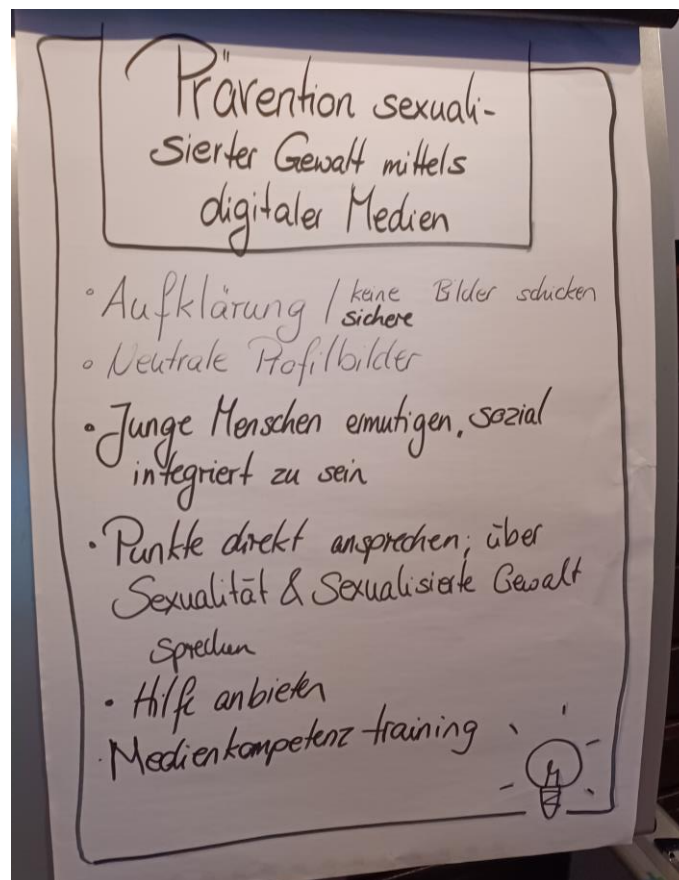 Prävention sexuali-
sierter Gewalt mittels
digitaler Medien
◦ Aufklärung / keine Bilder schicken
sichere
◦ Neutrale Profilbilder
• Junge Menschen ermutigen, sozial
integriert zu sein
• Punkte direkt ansprechen; über
Sexualität & Sexualisierte Gewalt
sprechen
• Hilfe anbieten
· Medienkompetenz training